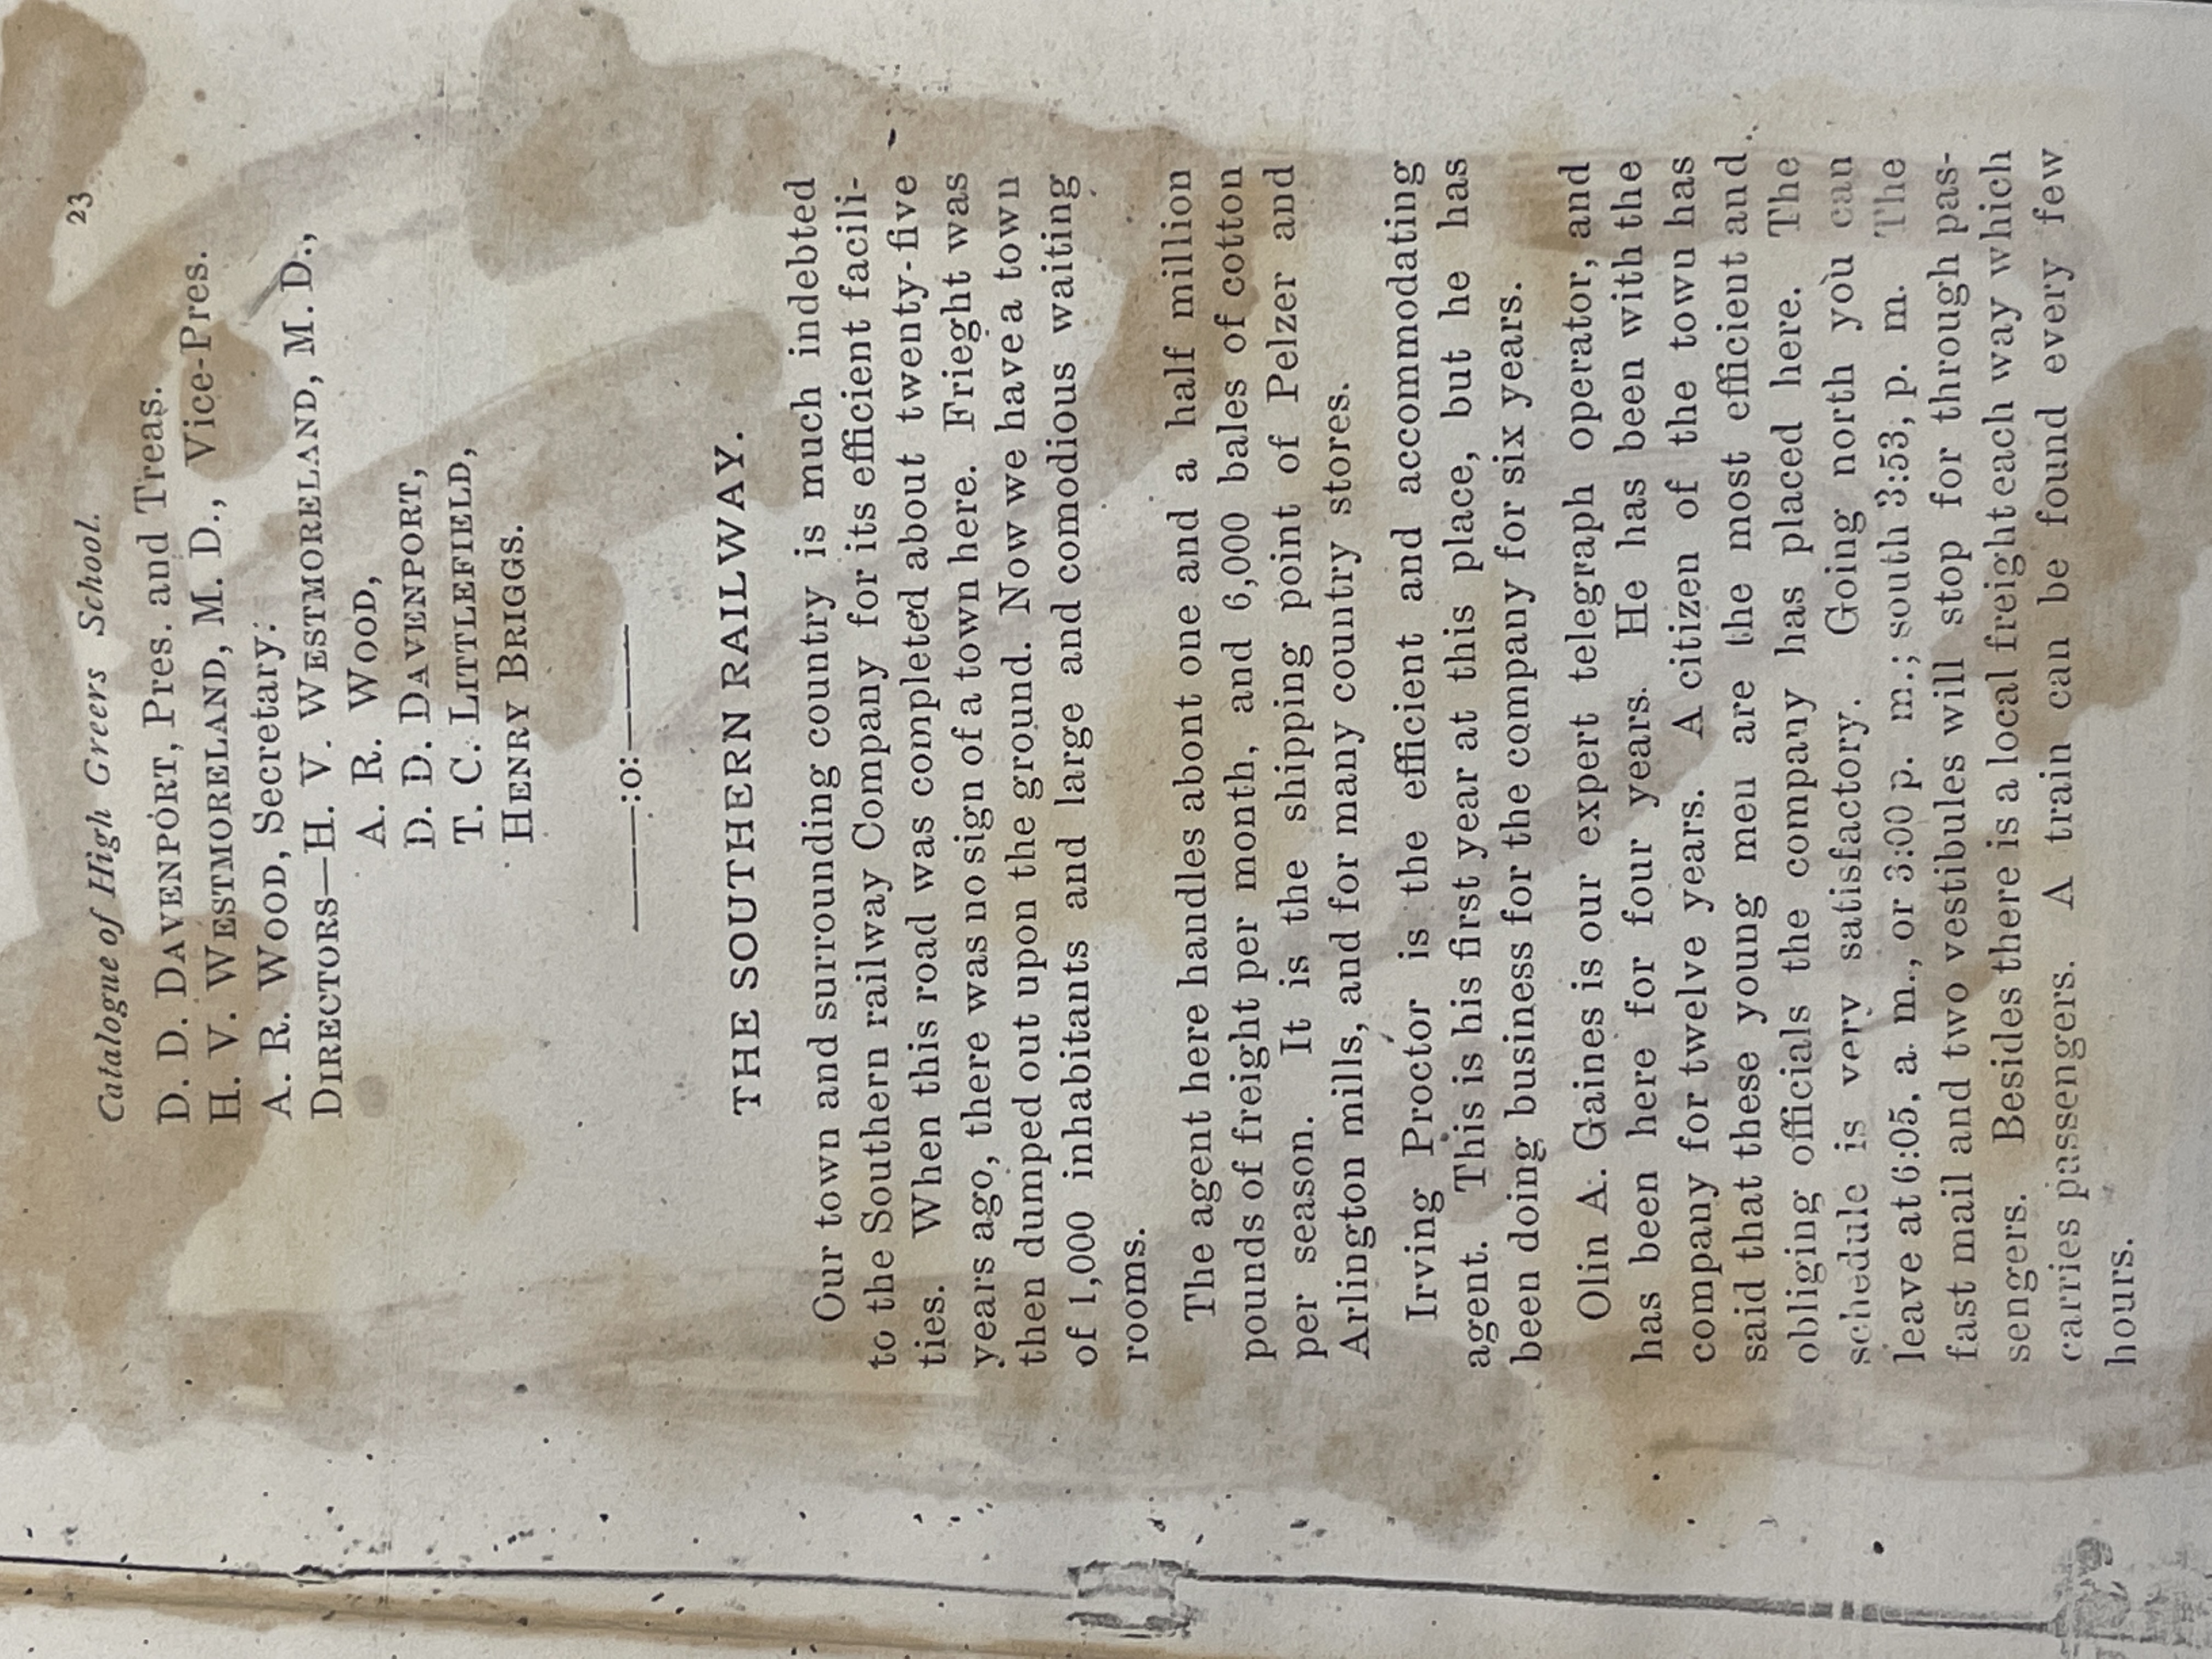 Catalogue of High Greers School. 23
D. D. DAVENPORT, Pres. and Treas.
H. V. WESTMORELAND, M. D., Vice-Pres.
A. R. WOOD, Secretary.
DIRECTORS—H. V. WESTMORELAND, M. D.,
A. R. WOOD,
D. D. DAVENPORT,
T. C. LITTLEFIELD,
HENRY BRIGGS.
———:o:———
THE SOUTHERN RAILWAY.
Our town and surrounding country is much indebted
to the Southern railway Company for its efficient facili-
ties. When this road was completed about twenty-five
years ago, there was no sign of a town here. Frieght was
then dumped out upon the ground. Now we have a town
of 1,000 inhabitants and large and comodious waiting
rooms.
The agent here handles abont one and a half million
pounds of freight per month, and 6,000 bales of cotton
per season. It is the shipping point of Pelzer and
Arlington mills, and for many country stores.
Irving Proctor is the efficient and accommodating
agent. This is his first year at this place, but he has
been doing business for the company for six years.
Olin A. Gaines is our expert telegraph operator, and
has been here for four years. He has been with the
company for twelve years. A citizen of the towu has
said that these young meu are the most efficient and
obliging officials the company has placed here. The
schedule is very satisfactory. Going north you can
leave at 6:05, a. m., or 3:00 p. m.; south 3:53; p. m. The
fast mail and two vestibules will stop for through pas-
sengers. Besides there is a local freight each way which
carries passengers. A train can be found every few
hours.